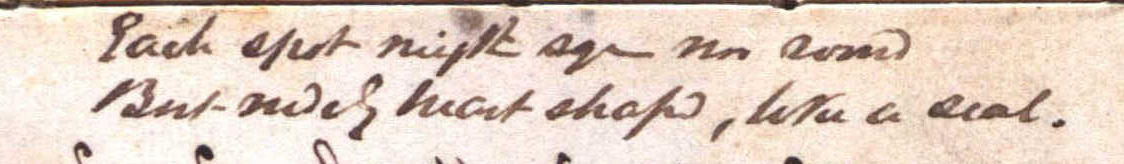 Each spot might sqr nor round
But rudely heart shap'd, like a seal.